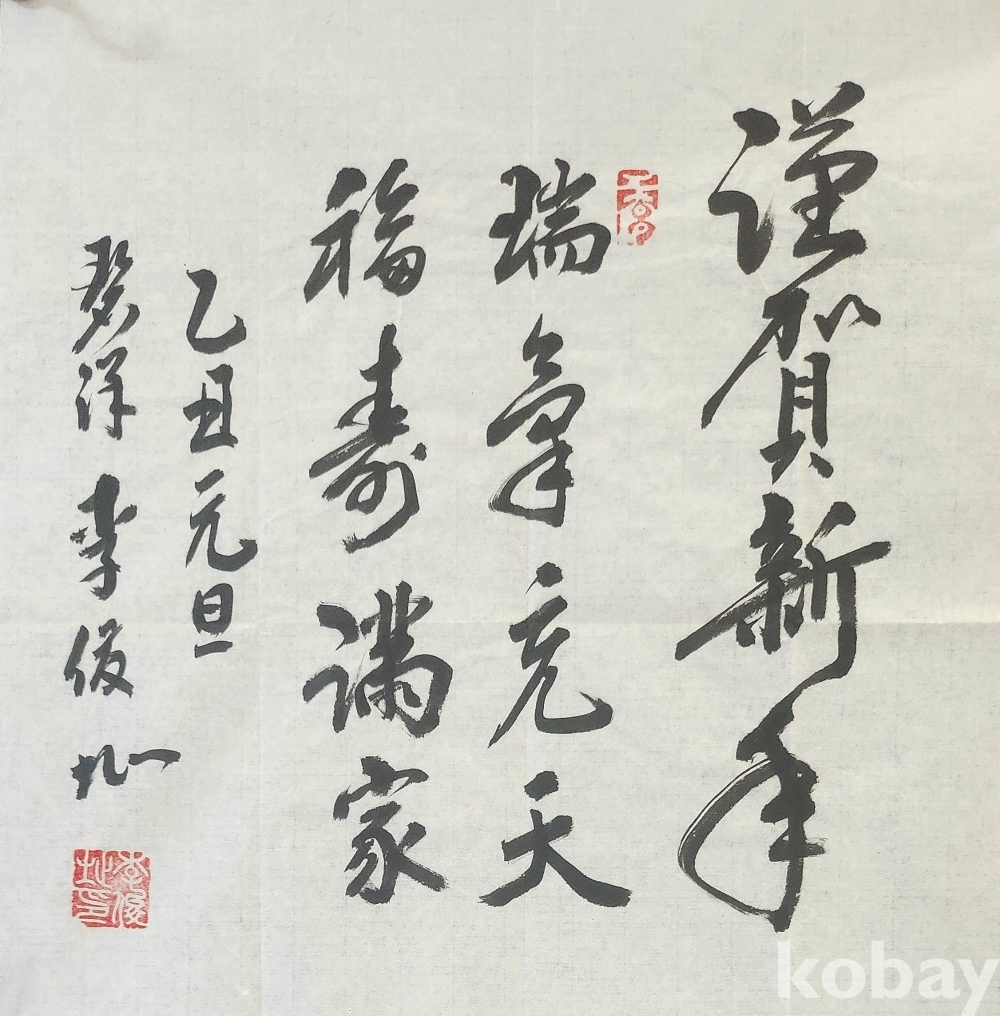 謹賀新年
瑞氣充天
福壽滿家
乙丑元旦
碧洋 李俊
kobay